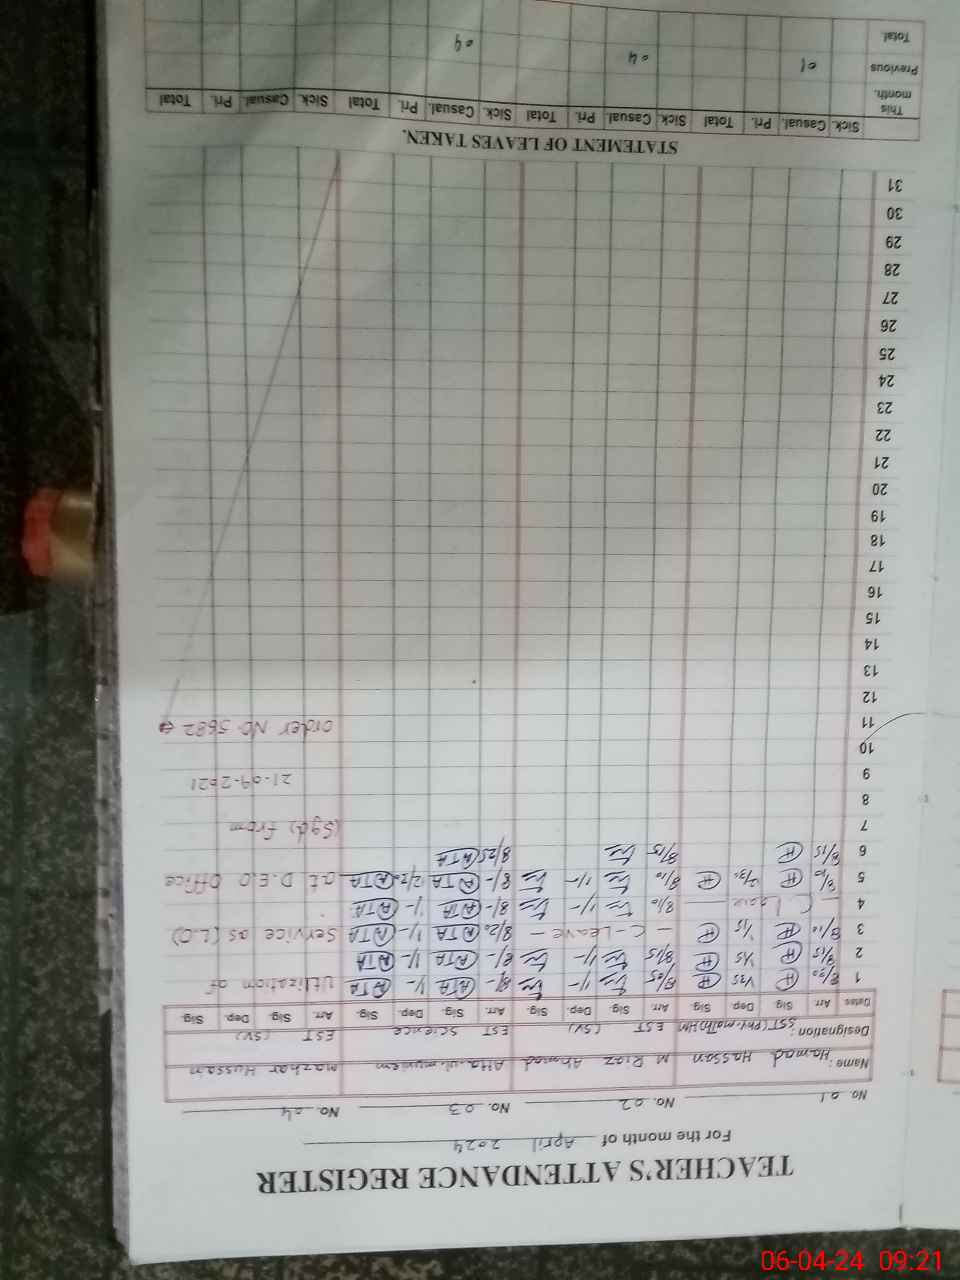 TEACHER'S ATTENDANCE REGISTER
For the month of April 2024
No. 01 No. 02 No. 03 No. 04
Name: Hamad Hassan M Riaz Ahmad Atta.ul.muniem Mazhar Hussain
Designation: SST(Phy-Math)HM EST (SV) EST Science EST (SV)
Dates Arr. Sig. Dep. Sig. Arr. Sig. Dep. Sig. Arr. Sig. Dep. Sig. Arr. Sig. Dep. Sig.
1 8/05 8/- ATA 1/- ATA Utilization of
2 8/15 8/15 1/- 8/- ATA 1/- ATA
3 8/10 1/15 - C-Leave - 8/20 ATA 1/- ATA Service as (L.O)
4 - C Leave 8/10 1/- 8/- ATA 1/- ATA
5 8/10 1/- 8/- ATA ATA at D.E.O Office
6 8/15 8/15 8/25 ATA
7 (Sgd) from
8
9 21-09-2021
10
11 order NO 5682
12
13
14
15
16
17
18
19
20
21
22
23
24
25
26
27
28
29
30
31
STATEMENT OF LEAVES TAKEN.
Sick. Casual. Pri. Total Sick. Casual. Pri. Total Sick. Casual. Pri. Total Sick. Casual. Pri. Total
This month.
Previous 01 04 09
Total
06-04-24 09:21